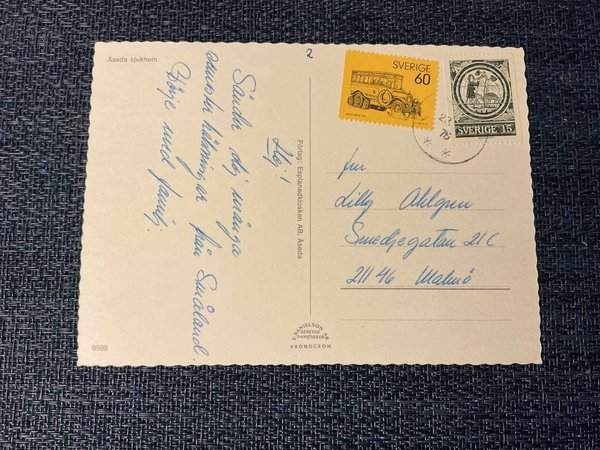 Åseda sjukhem
2
Hej!
Sänder dig många
önuska hälsningar från Småland.
Börje med familj.
Förlag: Esplanadkiosken AB, Åseda
SVERIGE
60
SVERIGE 15
75
Lilly Ahlgren
Smedjegatan 21C
211 46 Malmö
9599
DANIELSON
KRONOCROM